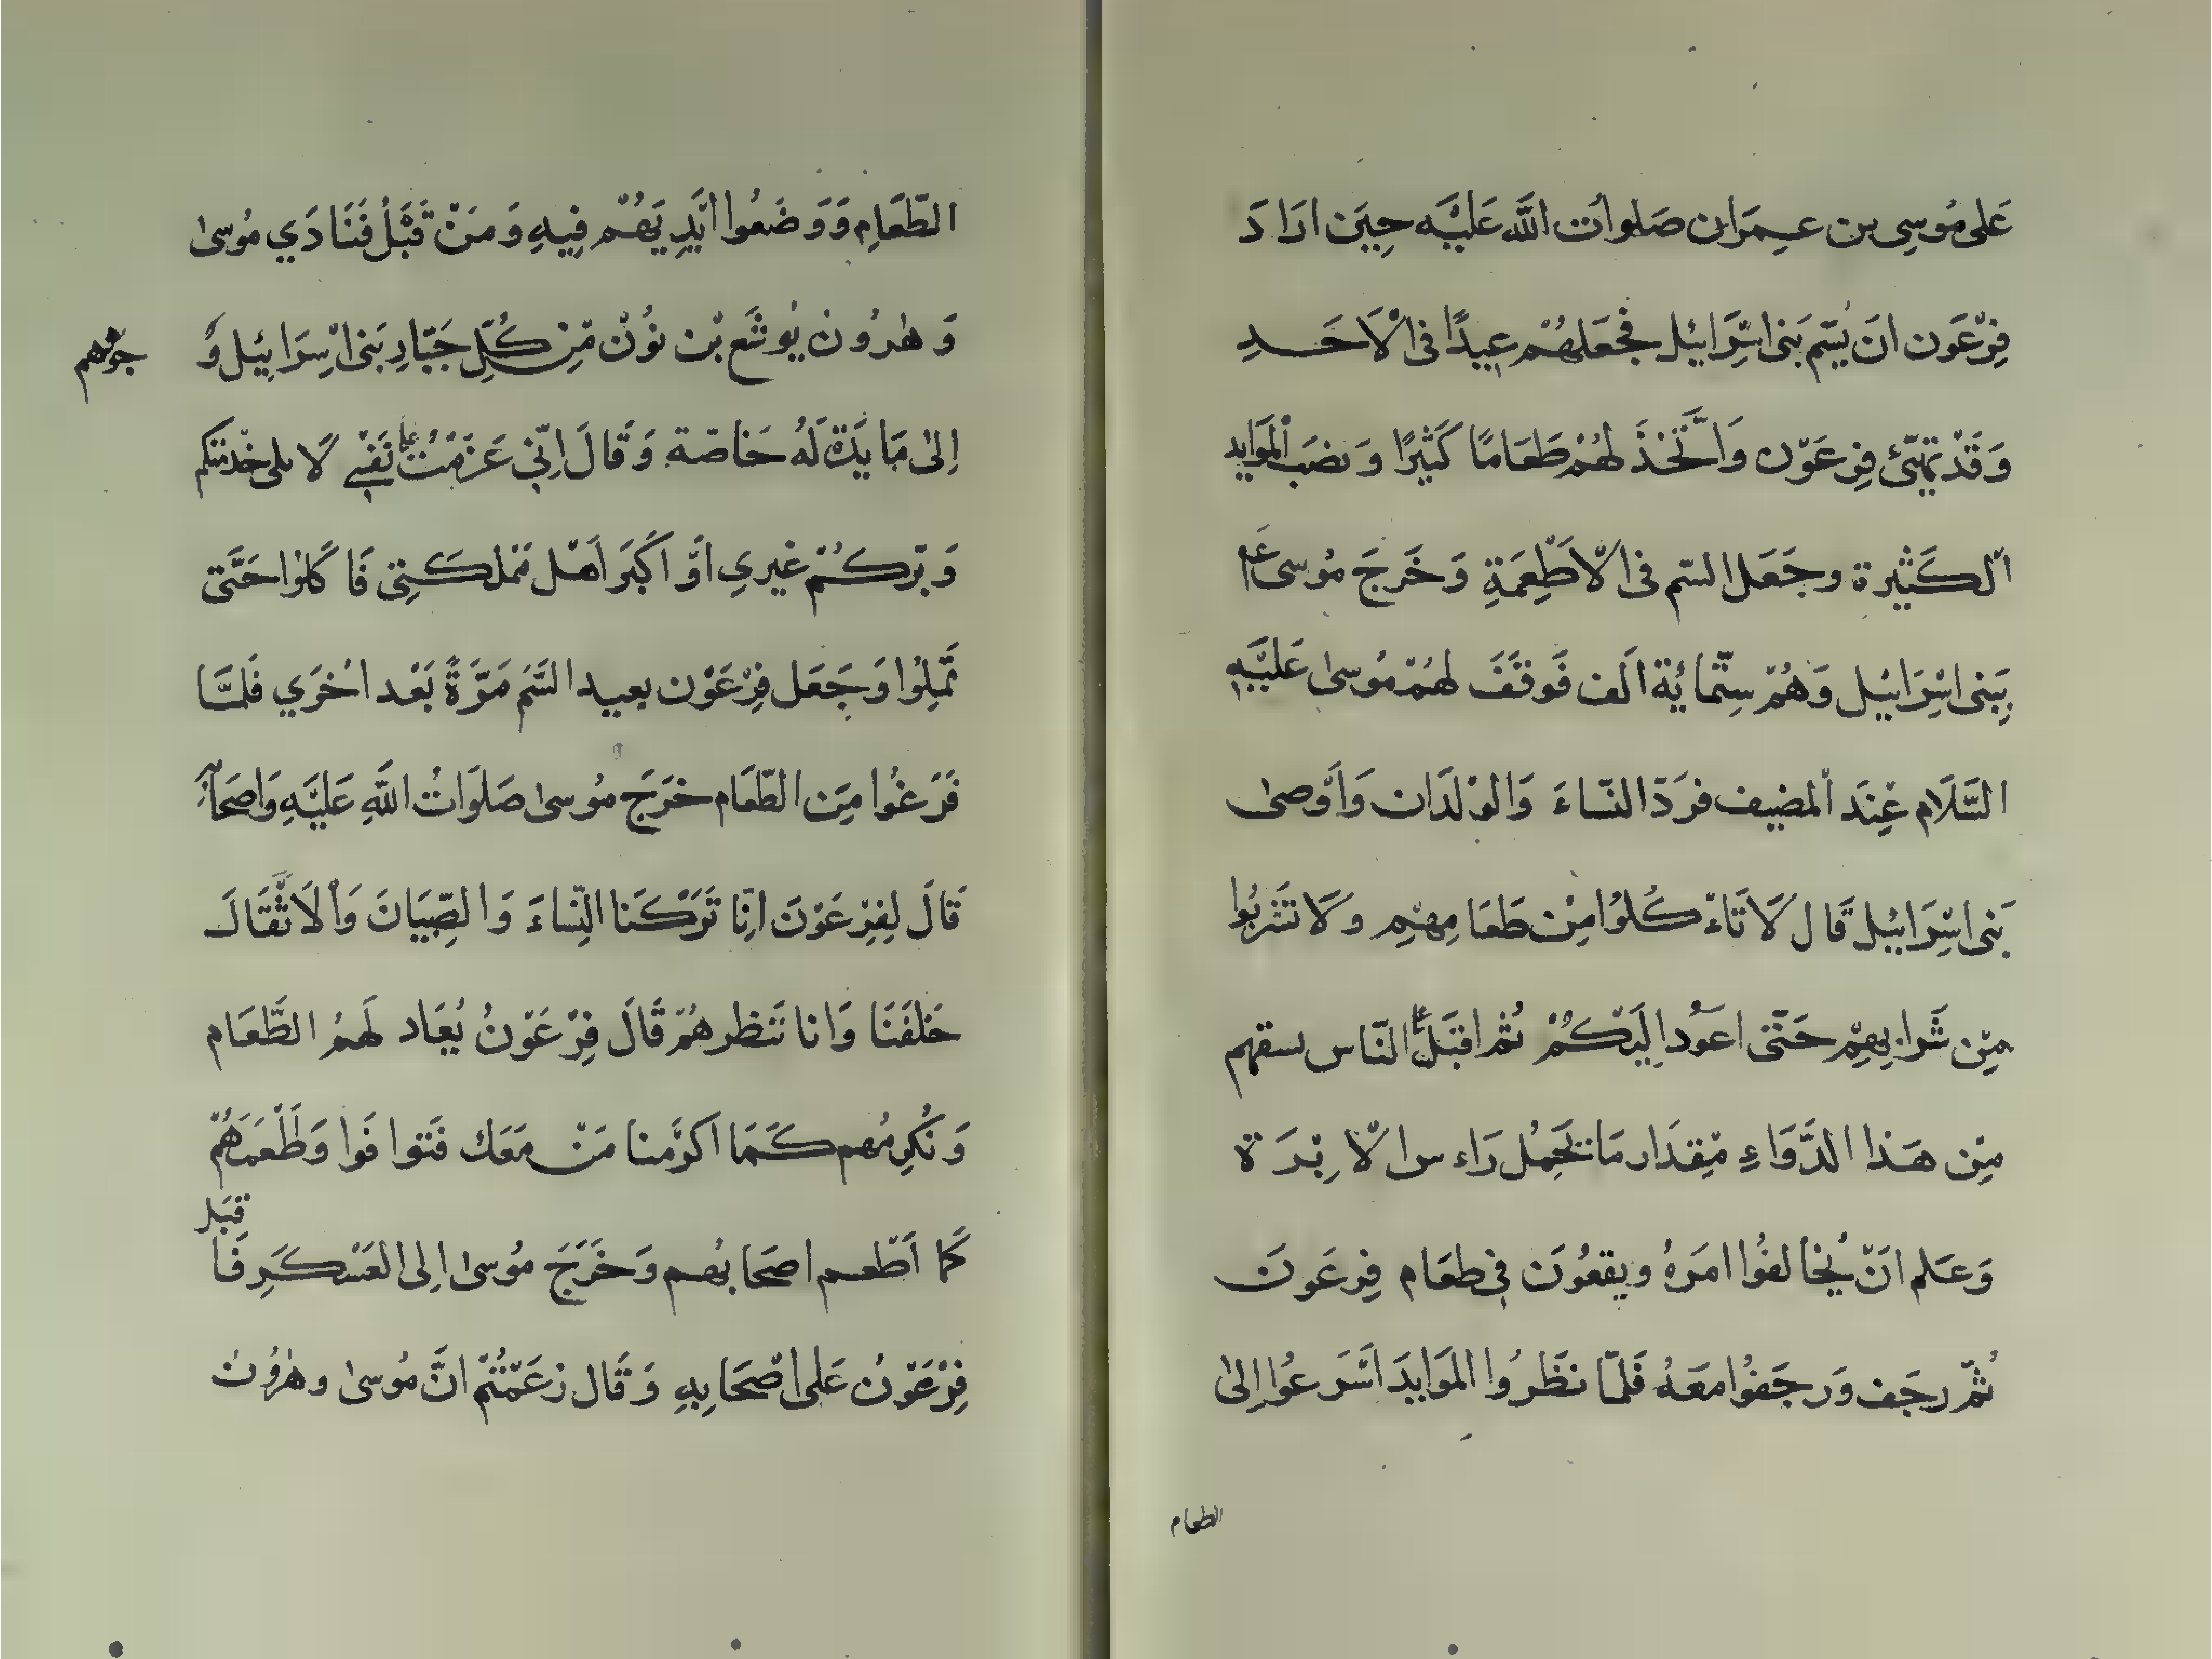 عَلى مُوسِى بن عِمَران صَلوات اللَّه عَليَّه حِيَن ارَادَ
فِرّعَون انَ يُسَم بَنى اسِّرَائيل فجعَلهُم عيدًا فى الْاَحَدِ
وَقَدّ تهيّئ فِرعَوّن وَاتَّخذَ لهُمْ طَعَامًا كَثيرًا وَنصَب الْمَوايد
الْكَثيرة وجَعَل السّم فى الْاَطْعِمَةِ وَخَرجَ مُوسى عَ
بِبَنى اسْرَائيل وَهُمّ سِتّمائة الَف فَوقَفَ لهُمّ مُوسىٰ عَليَّهِ
السَّلَام عِنَد الْمضيف فرَدّ النّساءَ وَالوْلدَان وَاَوّصىٰ
بَنى اسِّرَائيل قَال لَا تَاءكُلوُا مِنْ طَعَامِهمِ وَلا تَشْربُوا
مِّن شَرابِهِمْ حَتّى اعَوُد اِليَكُمْ ثُم اقبَل عَلَى النّاس سقهم
مِّن هَذا الدَّوَاءِ مِّقدَار مَا تَحَمِل رَاءس الْاِبْرَة
وَعَلم انَ يُخالفُوا امَرهُ ويقعُونَ فى طعَام فِرعَونَ
ثُمّ رجَف وَرجَفُوا معَهُ فَلمّا نظَرُوا المَوايدَ اسَرعُوا اِلىٰ
الطعام
الطّعَامِ وَوَضَعُوا ايَّدِيَهُمْ فِيهِ وَمَنْ قَبْلُ فَنَادَي مُوسىٰ
وَهٰرُون يُوشَع بْن نوُنْ مِّن كُلِّ جَبّارِ بَنى اسْرَائيل وَ
جوههم
اِلىٰ مَايَدة لَهُ خَاصّة وَقَالَ اِنّى عَزمْتُ عَلَى نَفسِي لَا يلى خدمتكم
وَبرّكُمْ غيرىِ اوَّ اكَبَر اَهْل مَملكَتِى فَاكَلوا حَتَّى
تَمّلِوُا وَجَعَل فِرْعَوْن يعيد السَّمَ مَرَّةً بَعْد اخُرَي فَلمَّا
فَرَغُوا مِنَ الطّعَام خرَجَ مُوسىٰ صَلَوَاتُ اللَّهِ عَليَّهِ وَاصحَابه
قَالَ لِفِرْعَوْنَ انِّا تَرَكْنَا النِّساءَ وَالصِّبيَانَ وَالْاثَّقَالَ
خَلفَنَا وَانا نَنظرهُمْ قَالَ فِرْعَوْنُ يُعَاد لَهمُ الطَّعَام
وَنُكِرمُهم كَمَا اكرَّمنا مَنْ مَعَك فَتوافَوا وَطَعْمَهُمْ
كَما اَطْعم اصحَابُهم وَخَرَجَ مُوسىٰ اِلى العَسْكَرِ فَاقبَل
فِرْعَوْنُ عَلى اصْحَابِهِ وَقَال زعَمْتُمْ انَّ مُوسىٰ وهٰرُون